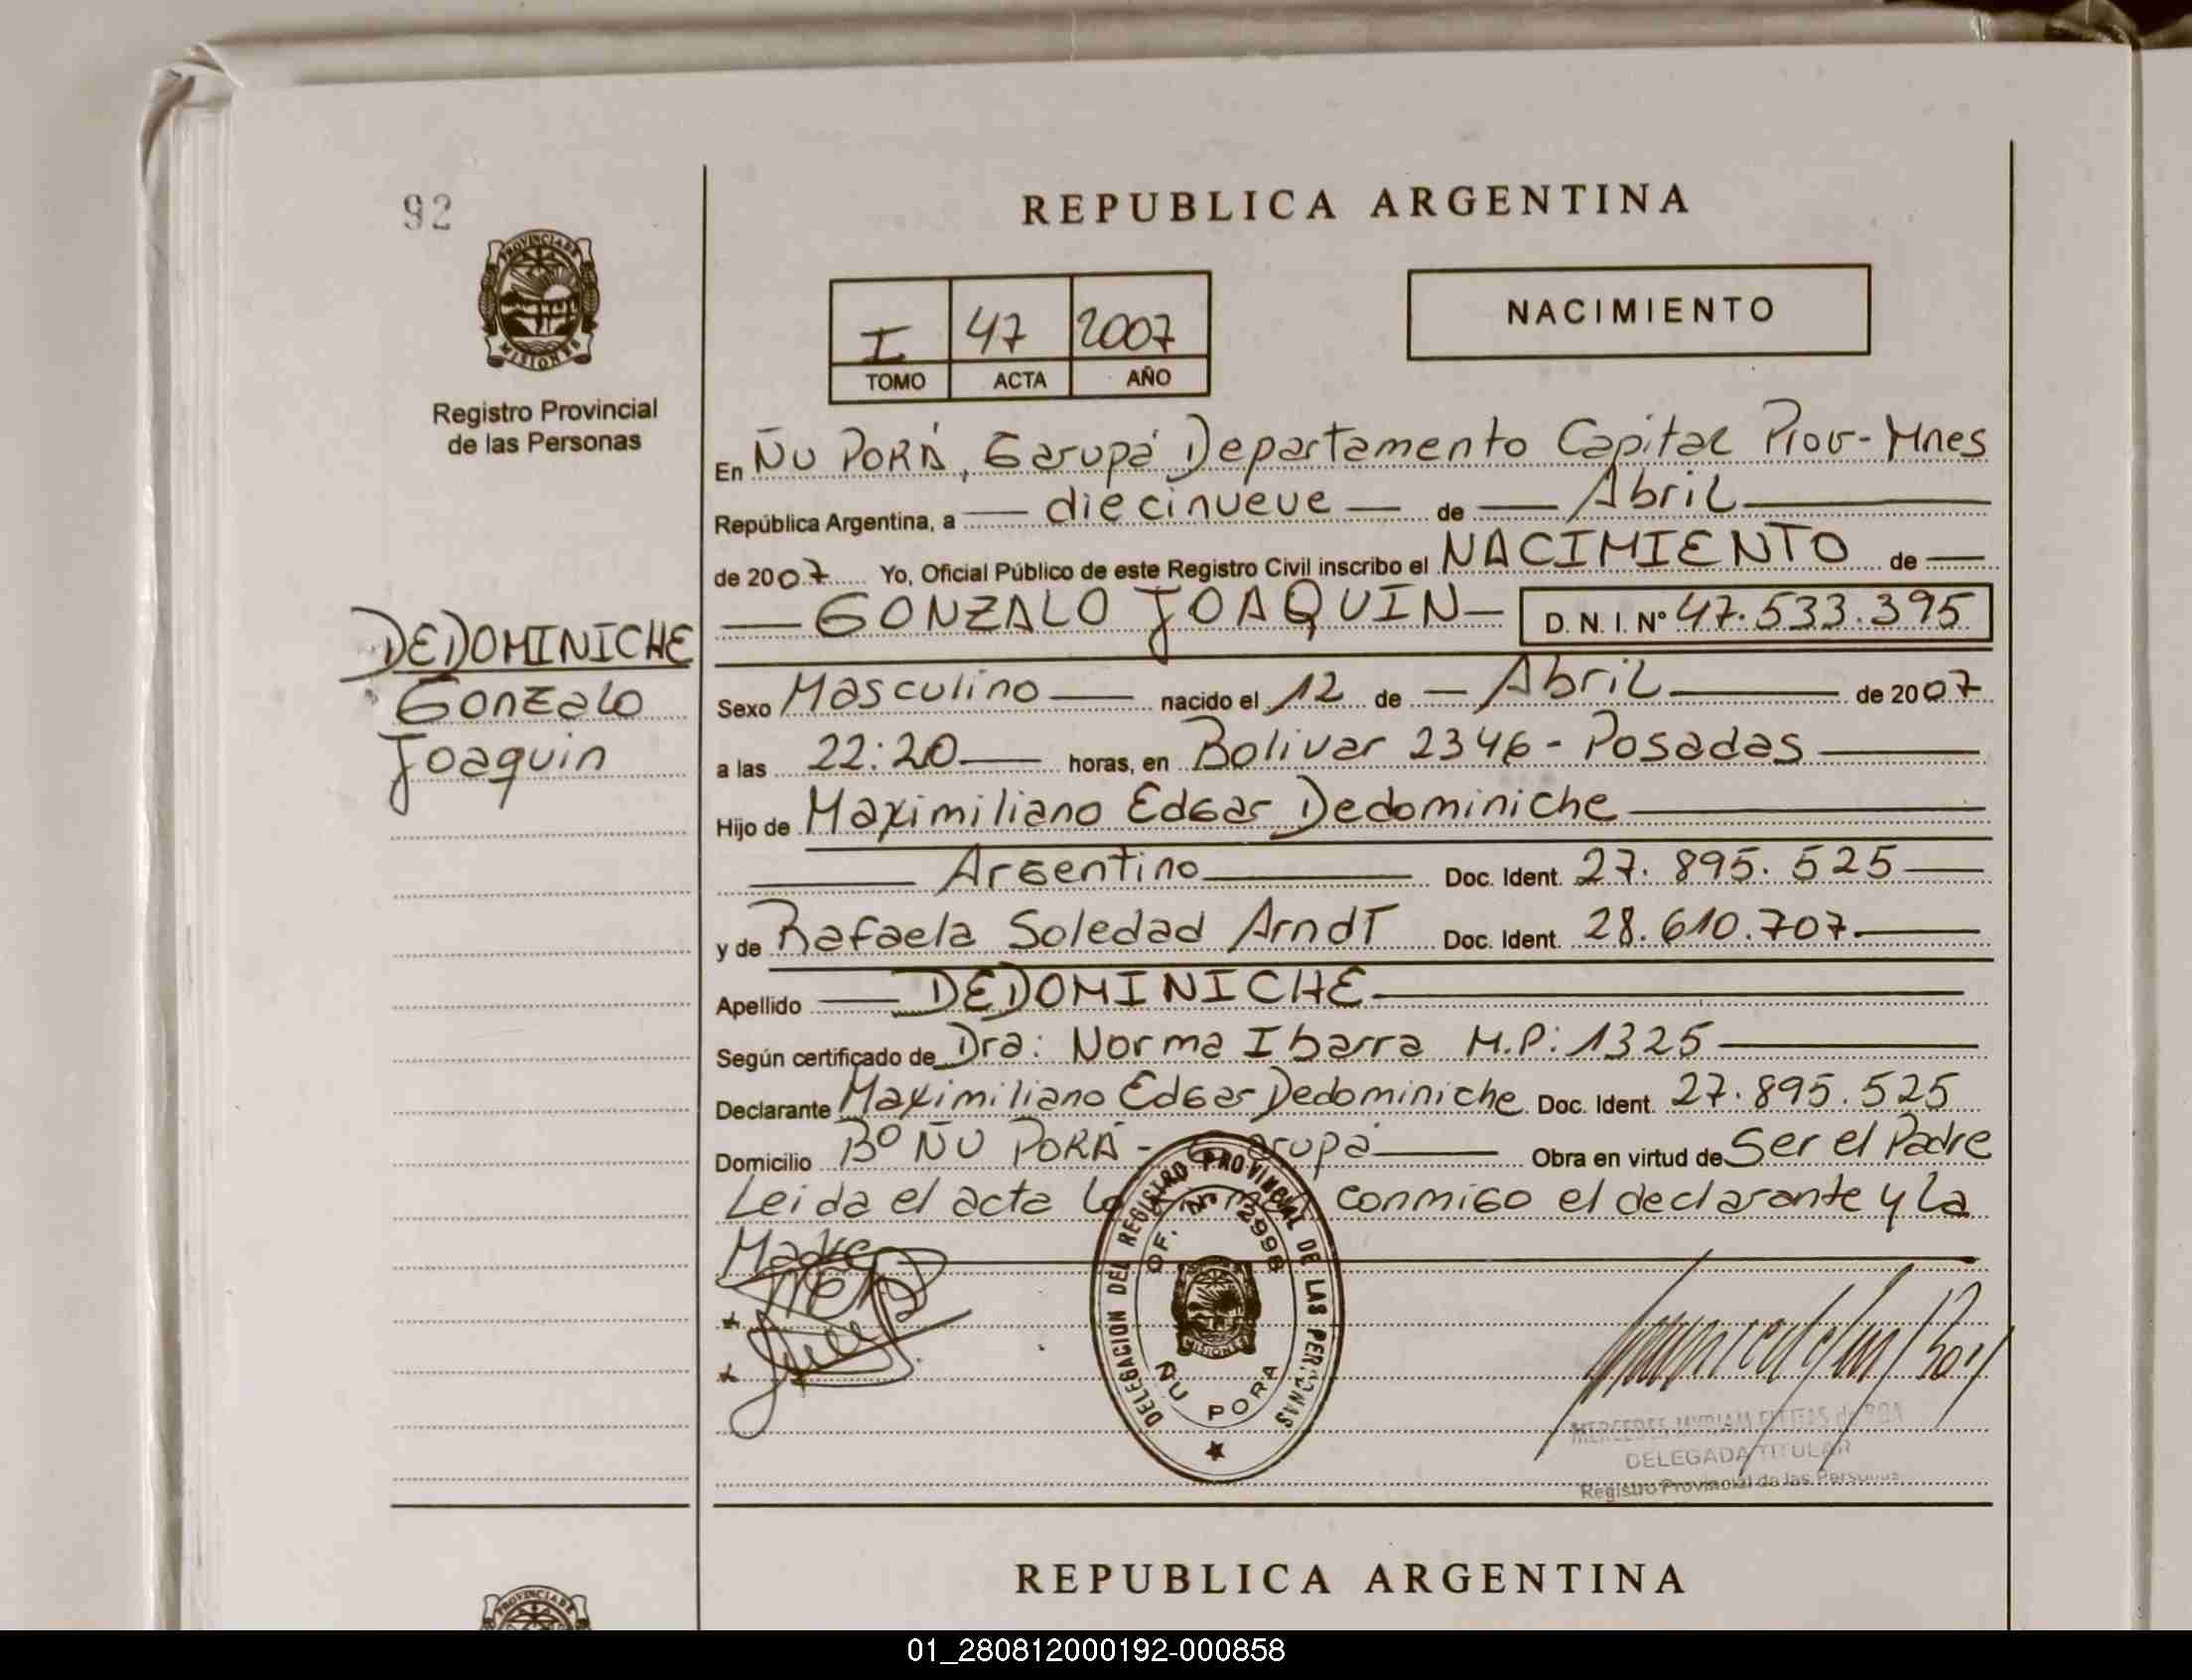 92
PROVINCIA DE
MISIONES
Registro Provincial
de las Personas
DEDOMINICHE
Gonzalo
Joaquin
REPUBLICA ARGENTINA
I 47 2007
TOMO ACTA AÑO
NACIMIENTO
En ÑU PORÁ, Garupá Departamento Capital Prov-Mnes
República Argentina, a diecinueve de Abril
de 2007 Yo, Oficial Público de este Registro Civil inscribo el NACIMIENTO de
GONZALO JOAQUIN D. N. I. Nº 47.533.395
Sexo Masculino nacido el 12 de Abril de 2007
a las 22:20 horas, en Bolivar 2346 - Posadas
Hijo de Maximiliano Edgar Dedominiche
Argentino Doc. Ident. 27.895.525
y de Rafaela Soledad Arndt Doc. Ident. 28.610.707
Apellido DEDOMINICHE
Según certificado de Dra: Norma Ibarra M.P: 1325
Declarante Maximiliano Edgar Dedominiche Doc. Ident. 27.895.525
Domicilio Bº ÑU PORÁ - Garupá Obra en virtud de Ser el Padre
Leida el acta la firman conmigo el declarante y la
Madre
DELEGACION DEL REGISTRO PROVINCIAL DE LAS PERSONAS
OF. Nº 2998
MISIONES
ÑU PORA
MERCEDES MYRIAM FLEITAS de ROA
DELEGADA TITULAR
Registro Provincial de las Personas
REPUBLICA ARGENTINA
PROVINCIA DE
01_280812000192-000858